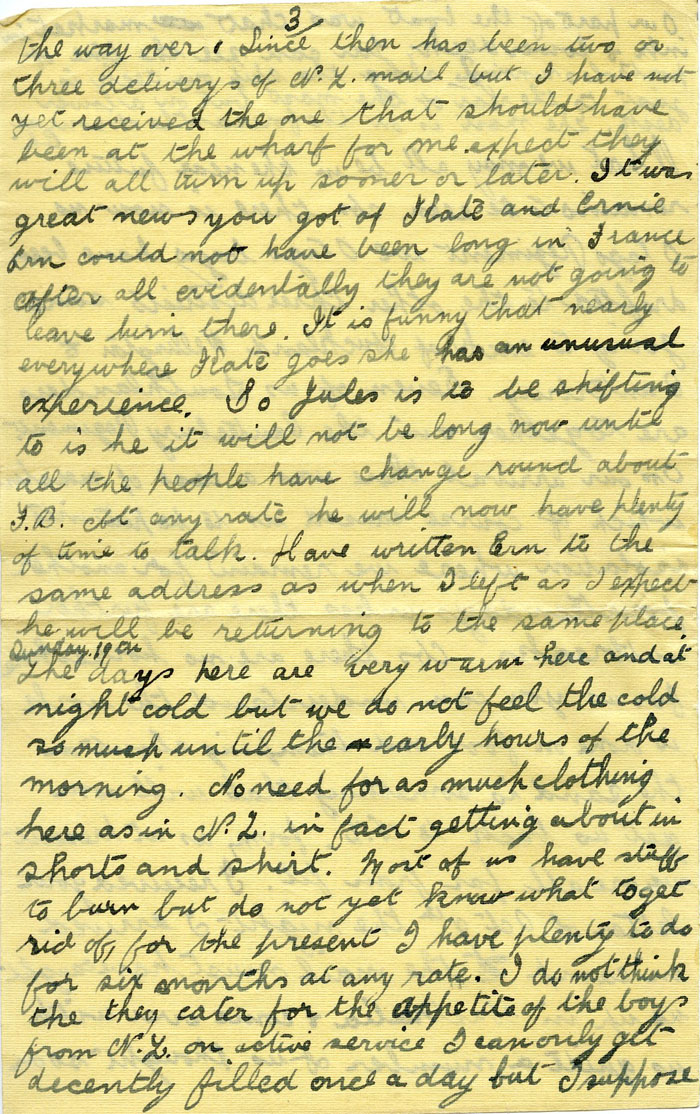 3
the way over. Since then has been two or
three deliverys of N.Z. mail but I have not
yet received the one that should have
been at the wharf for me. expect they
will all turn up sooner or later. It was
great news you got of Kate and Ernie
Ern could not have been long in France
after all evidentally they are not going to
leave him there. It is funny that nearly
everywhere Kate goes she has an unusual
experience. So Jules is to be shifting
to is he it will not be long now until
all the people have change round about
F.B. At any rate he will now have plenty
of time to talk. Have written Ern to the
same address as when I left as I expect
he will be returning to the same place
Sunday. 19th
The days here are very warm here and at
night cold but we do not feel the cold
so much until the early hours of the
morning. No need for as much clothing
here as in N.Z. in fact getting about in
shorts and shirt. Most of us have stuff
to burn but do not yet know what to get
rid of, for the present I have plenty to do
for six months at any rate. I do not think
the they cater for the appetite of the boys
from N.Z. on active service I can only get
decently filled once a day but I suppose